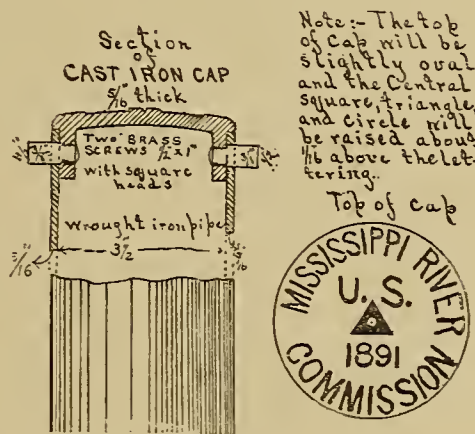 Section
of
CAST IRON CAP
5/16" thick
TWO BRASS
SCREWS 1/2 x 1"
with square
heads
wrought iron pipe
3 1/2
3/16
Note:- The top
of Cap will be
slightly oval
and the Central
square, triangle,
and circle will
be raised about
1/16 above the let-
tering.
Top of cap
MISSISSIPPI RIVER
U. S.
1891
COMMISSION